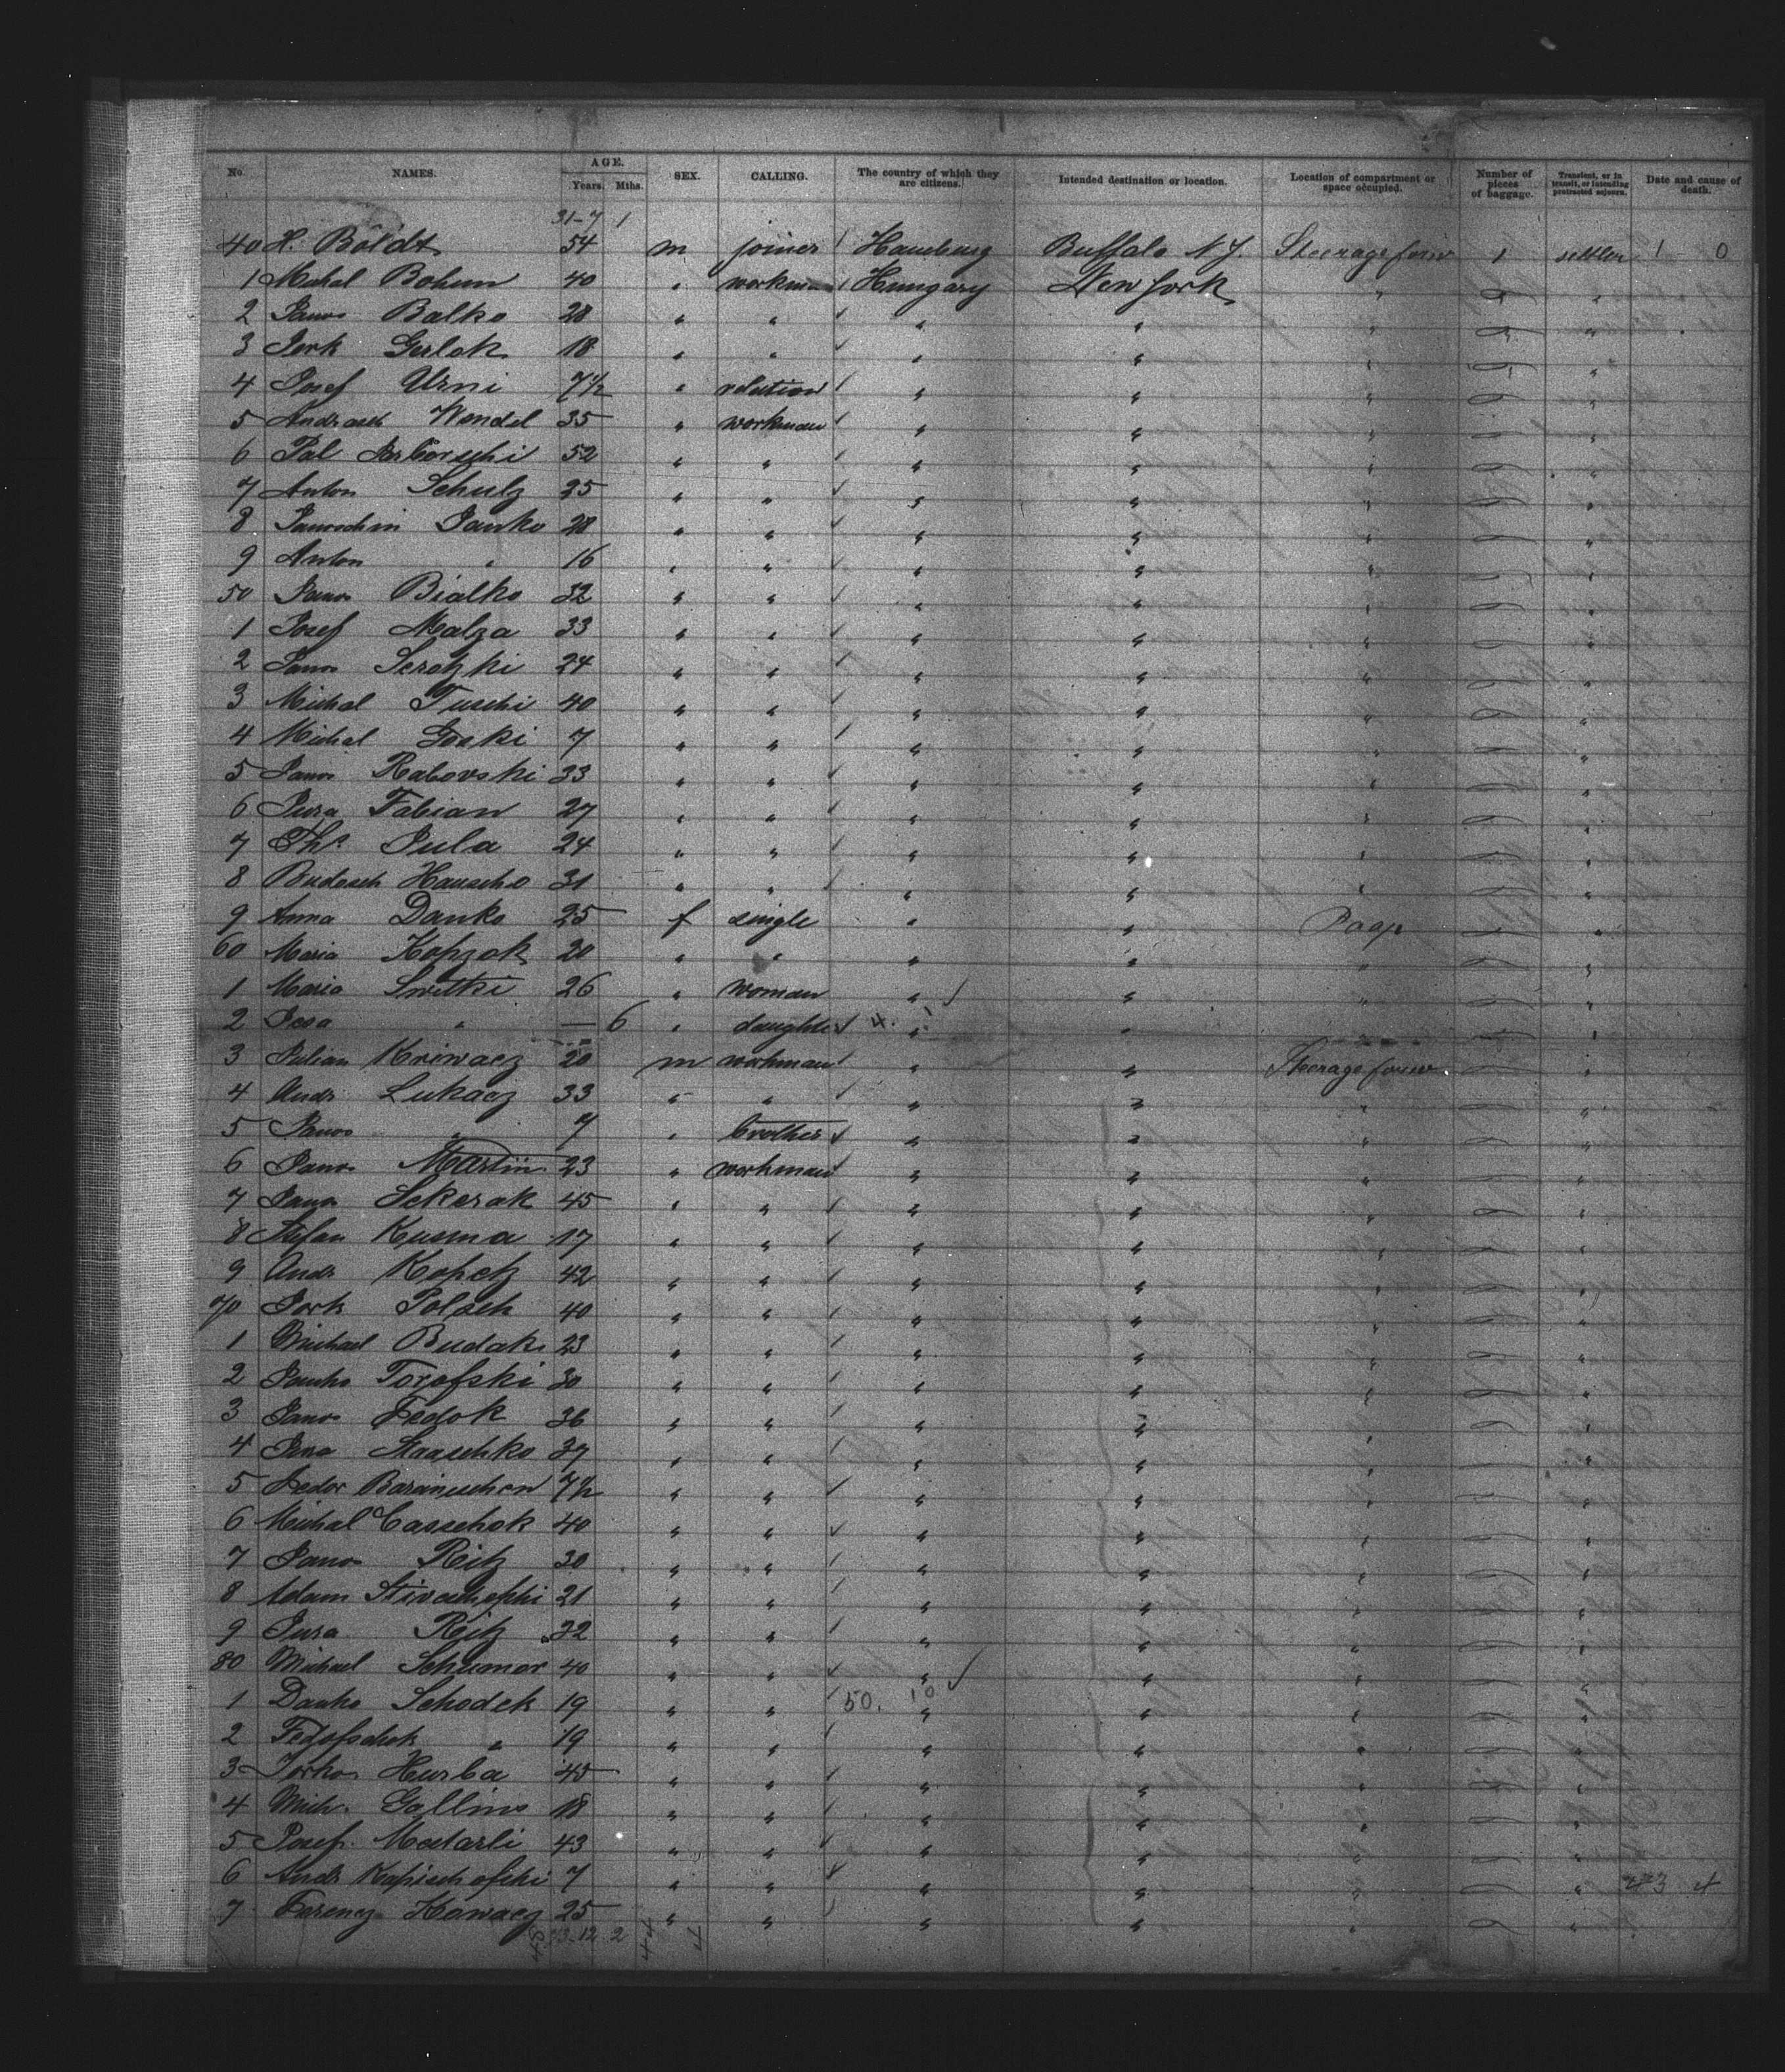 No. NAMES. AGE. Years. Mths. SEX. CALLING. The country of which they are citizens. Intended destination or location. Location of compartment or space occupied. Number of pieces of baggage. Transient, or in transit, or intending protracted sojourn. Date and cause of death.
31-7 1
40 H. Boldt 54 m joiner Hamburg Buffalo N.Y. Steerage forw 1 settler 1 0
1 Mihal Bohun 40 " workman Hungary New York " " "
2 Janos Balko 28 " " " " " "
3 Jork Gerlak 18 " " " " " "
4 Josef Urni 7½ " relation " " " "
5 Andrasch Wendel 35 " workman " " " "
6 Pal 52 " " " " " "
7 Anton Schulz 25 " " " " " "
8 Janko 28 " " " " " "
9 Anton " 16 " " " " " "
50 Janos Bialko 32 " " " " " "
1 Josef Malza 33 " " " " " "
2 Janos Serotzki 24 " " " " " "
3 Michal Tuschi 40 " " " " " "
4 Michal Goski 7 " " " " " "
5 Janos Rabovski 33 " " " " " "
6 Jura Fabian 27 " " " " " "
7 Ths. Jula 24 " " " " " "
8 Budasch Hauscho 31 " " " " " "
9 Anna Danko 25 f single " " Poop "
60 Maria Kopzak 20 " " " " " "
1 Maria Switki 26 " woman " " " "
2 " — 6 " daughter 4. " " " "
3 Julian Kriwacz 20 m workman " " Steerage forw "
4 Andr. Lukacz 33 " " " " " "
5 Janos " 7 " brother " " " "
6 Janos Martin 23 " workman " " " "
7 Janos Sekerak 45 " " " " " "
8 Stefan Kusma 17 " " " " " "
9 Andr Kopetz 42 " " " " " "
70 Jork Polsek 40 " " " " " "
1 Michael Budak 23 " " " " " "
2 Janko Torofski 30 " " " " " "
3 Janos Fedok 36 " " " " " "
4 Jura Straschko 37 " " " " " "
5 Fedor 7½ " " " " " "
6 Michal Casschok 40 " " " " " "
7 Janos Ritz 30 " " " " " "
8 Adam 21 " " " " " "
9 Jura Ritz 32 " " " " " "
80 Michael Schumar 40 " " " " " "
1 Danko Schodek 19 " " 50. 10 " " " "
2 " 19 " " " " " "
3 Jorko Hurba 45 " " " " " "
4 Mich. Gallins 18 " " " " " "
5 Josef 43 " " " " " "
6 Andr Kapischofski 7 " " " " " "
7 Ferencz Kowacz 25 " " " " " "
12 2 44